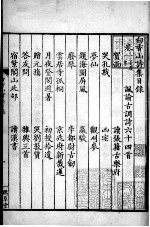 白香山詩集目錄
卷一
諷諭古調詩六十四首
賀雨
讀張籍古樂府
哭孔戡
凶宅
夢仙
觀刈麥
題海圖屏風
羸駿
廢琴
李都尉古劍
雲居寺孤桐
京兆府新栽蓮
月夜登閣避暑
初授拾遺
贈元稹
哭劉敦質
答友問
雜興三首
宿紫閣山北邨
讀漢書